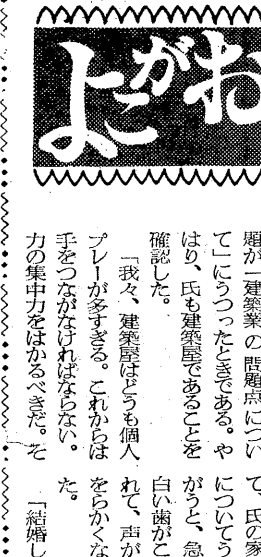 よこがお
題が「建築業の問題点につい
て」にうつったときである。や
はり、氏も建築屋であることを
確認した。
「我々、建築屋はどうも個人
プレーが多すぎる。これからは
手をつながなければならない。
力の集中力をはかるべきだ。そ
て、氏の家
についてう
がうと、急
白い歯がこ
れて、声が
をらかくな
た。
「結婚し